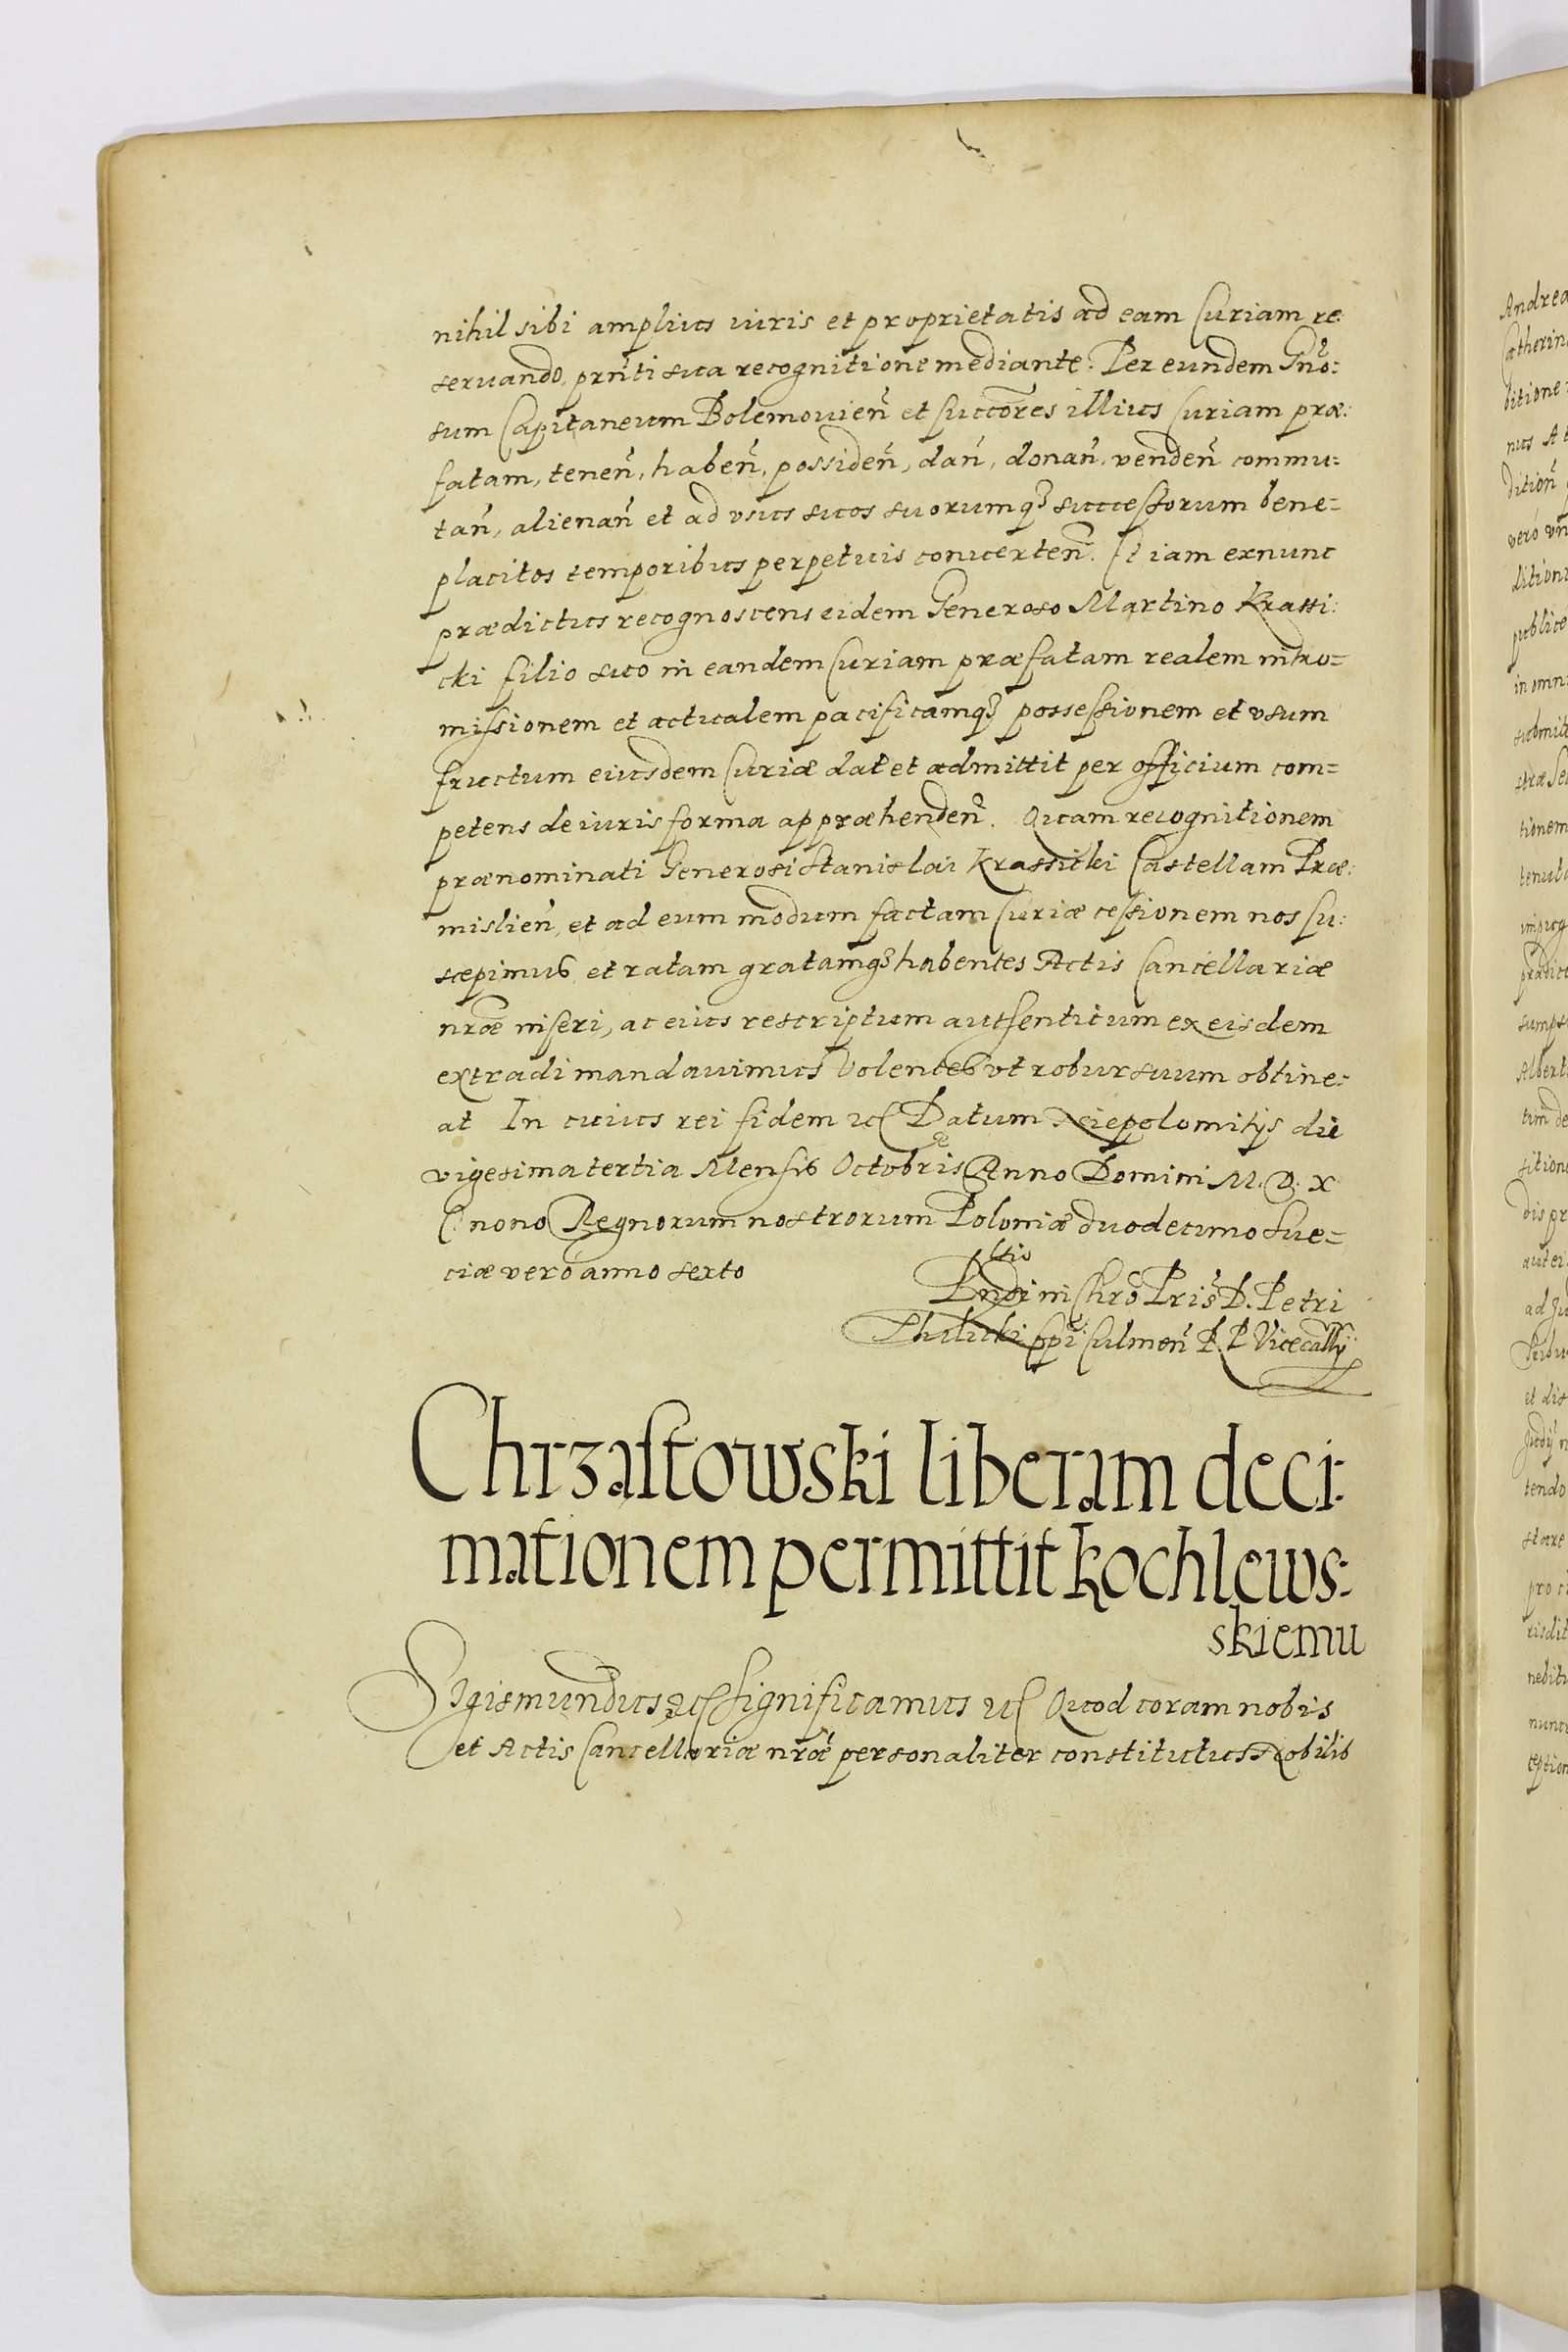 nihil sibi amplius iuris et proprietatis ad eam Curiam re:
seruando, prñti sua recognitione mediante. Per eundem Gño:
sum Capitaneum Bolemouien̄ et succores illius Curiam præ:
fatam, tenen̄, haben̄, possiden̄, dan̄, donan̄, venden̄ commu=
tan̄, alienan̄ et ad vsus suos suorumq3 successorum bene=
placitos temporibus perpetuis conuerten̄. Et iam exnunc
prædictus recognoscens eidem Generoso Martino Krassi:
cki filio suo in eandem Curiam præfatam realem intro=
missionem et actualem pacificamq3 possessionem et vsum
fructum eiusdem Curiæ dat et admittit per officium com=
petens de iuris forma appræhenden̄. Quam recognitionem
prænominati Generosi Stanislai Krassicki Castellani Præ:
mislien̄, et ad eum modum factam Curiæ cessionem nos su:
scepimus et ratam gratamq3 habentes Actis Cancellariæ
nræ inseri, ac eius rescriptum authenticum ex eisdem
extradi mandauimus Volentes vt robur suum obtine:
at In cuius rei fidem etc Datum Niepolomitijs die
vigesima tertia Mensis Octobris Anno Domini M. D. X
C. nono Regnorum nostrorum Poloniæ duodecimo Sue=
ciæ vero anno sexto
Rndi in Chro Pris D. Petri
Tylicki Eppi Culmen̄ R. P. Vicecallrij
Chrząstowski liberam deci:
mationem permittit Kochlews:
skiemu
Sigismundus etc Significamus etc Quod coram nobis
et Actis Cancellariæ nræ personaliter constitutus Nobilis